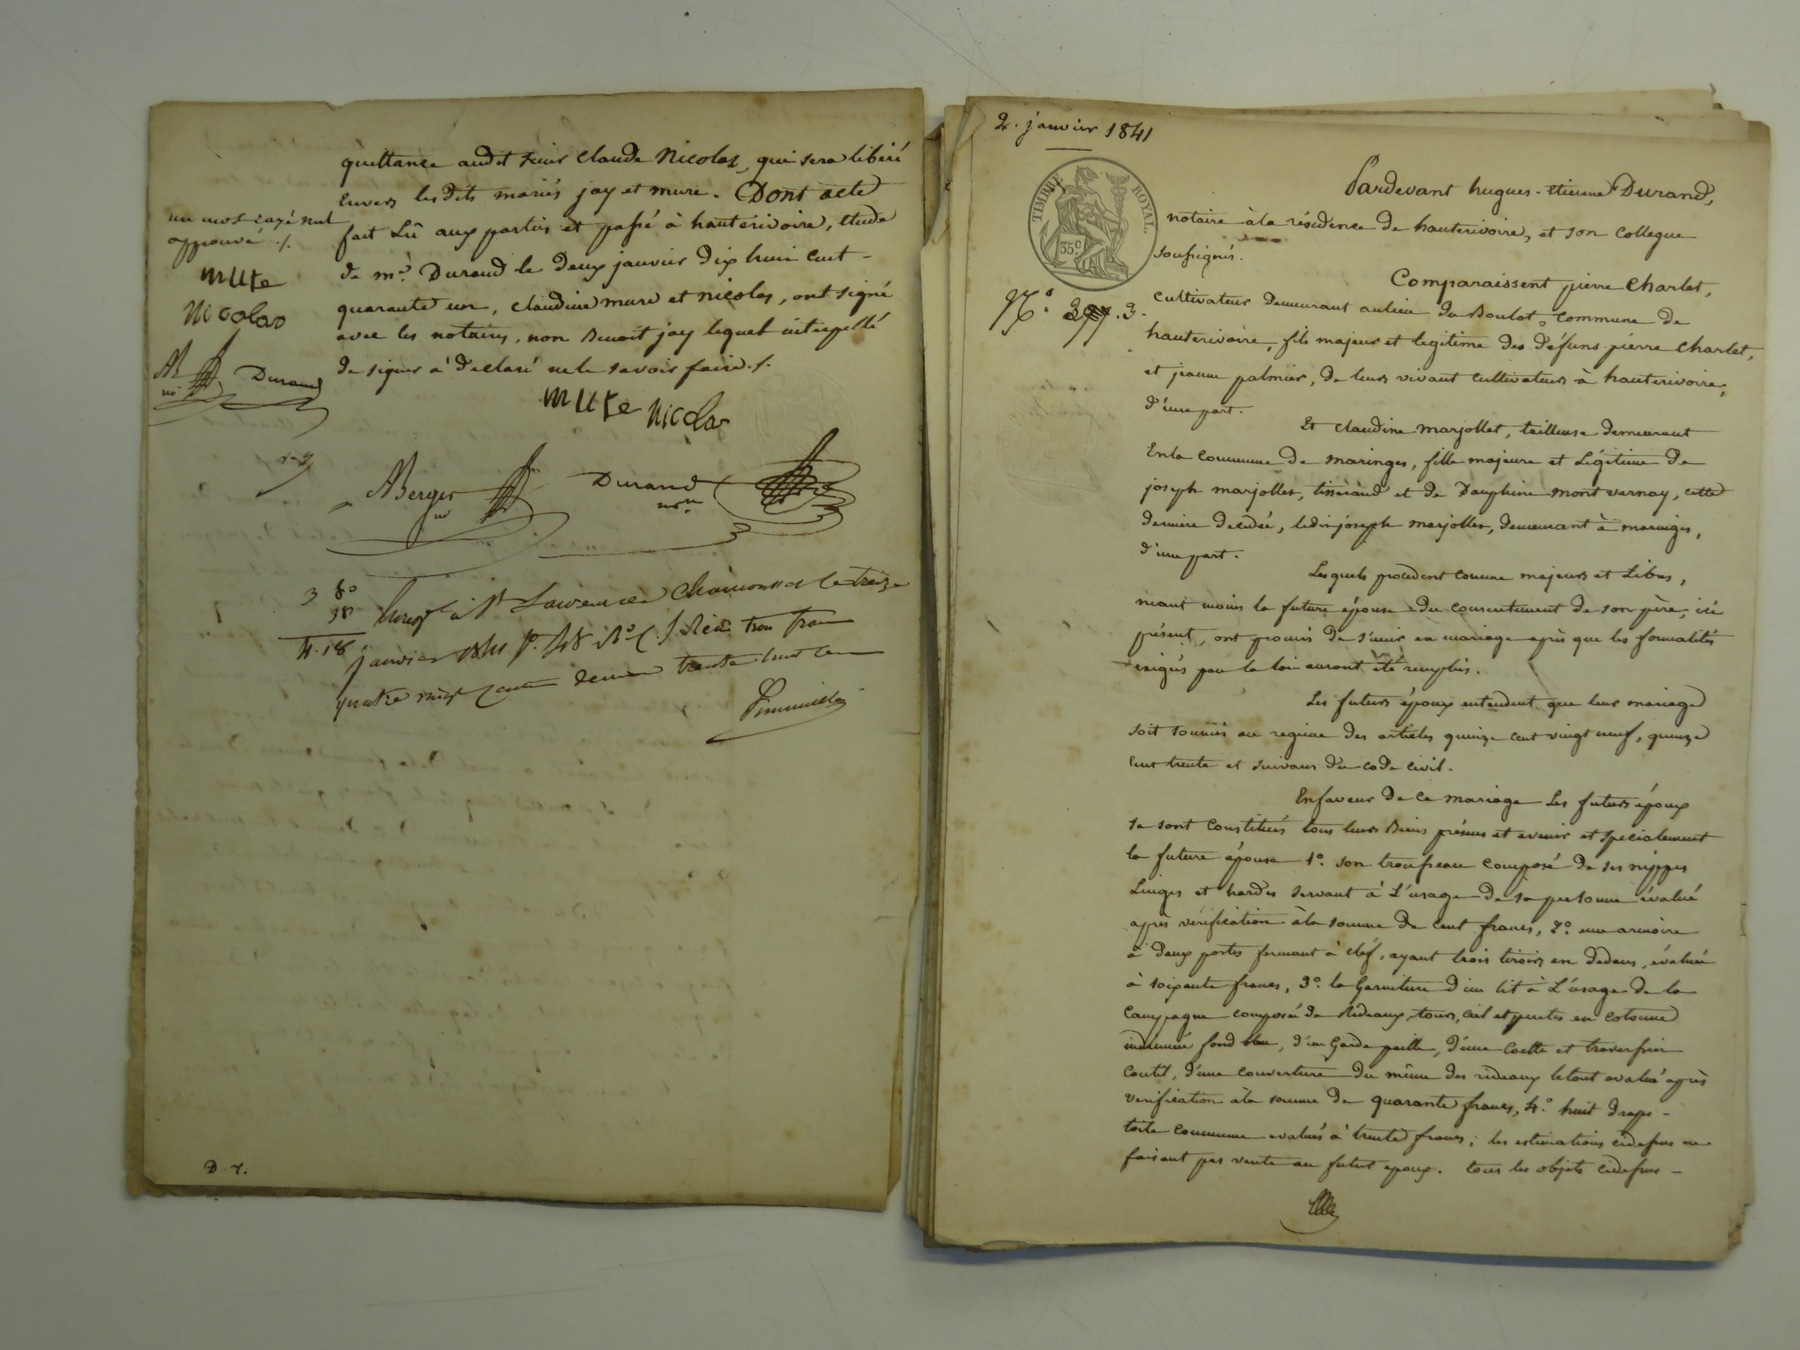 quittance audit sieur claude Nicolas, qui sera libéré
Envers les dits mariés jay et mure. Dont acte
fait Lû aux parties et passé à hauterivoire, étude
de me Durand le deux janvier dix huit cent-
quarante un, claudine mure et nicolas, ont signé
avec les notaires, non Benoit jay lequel interpellé
de signer a déclaré ne le savoir faire./.
un mot rayé nul
approuvé ./.
mure
Nicolas
Durand
mure Nicolas
ABerger
Durand
3 80
38
4.18
Enreg à St Laurent de Chamousset le treize
janvier 1841 fo. 48 Ro C. Reçu trois francs
quatre vingt cent decime trente huit cen
D. 7.
2. janvier 1841
TIMBRE ROYAL
35 c
No 3.
Pardevant hugues-étienne Durand,
notaire à la résidence de hauterivoire, et son collegue
soussignés.
Comparaissent pierre Charlet,
cultivateur demeurant au lieu du Boulot, commune de
hauterivoire, fils majeur et legitime des défuns pierre Charlet,
et jeanne palmier, de leurs vivant cultivateurs à hauterivoire,
d'une part.
Et claudine marjollet, tailleuse demeurant
En la commune de maringes, fille majeure et Légitime de
joseph marjollet, tisserand et de Dauphine mont vernay, cette
dernière décédée, ledit joseph marjollet, demeurant à maringes,
d'une part.
Lesquels procédent comme majeurs et Libres,
néant moins la future épouse du consentement de son père, ici
présent, ont promis de s'unir en mariage après que les formalités
exigées par la loi auront été remplies.
Les futurs époux entendent que leur mariage
soit soumis au régime des articles quinze cent vingt neuf, quinze
cent trente et suivans du code civil.
En faveur de ce mariage Les futurs époux
se sont constitués tous leurs Biens présens et avenir et spécialement
la future épouse 1o. son trousseau composé de ses nippes
Linges et hardes servant à L'usage de sa personne évalué
après vérification à la somme de cent francs, 2o. une armoire
à deux portes fermant à cléf, ayant trois tiroirs en dedans, évaluée
à soixante francs, 3o. la Garniture d'un lit à L'usage de la
Campagne composée de Rideaux, tours, ciel et pentes en cotonne
indienne fond bleu, d'un Garde paille, d'une Coette et traversin
coutil, d'une couverture du même des rideaux le tout évalué après
vérification à la somme de quarante francs, 4o. huit draps -
toile commune évalués à trente francs; les estimations cidessus ne
faisant pas vente au futur époux. tous les objets cidessus -